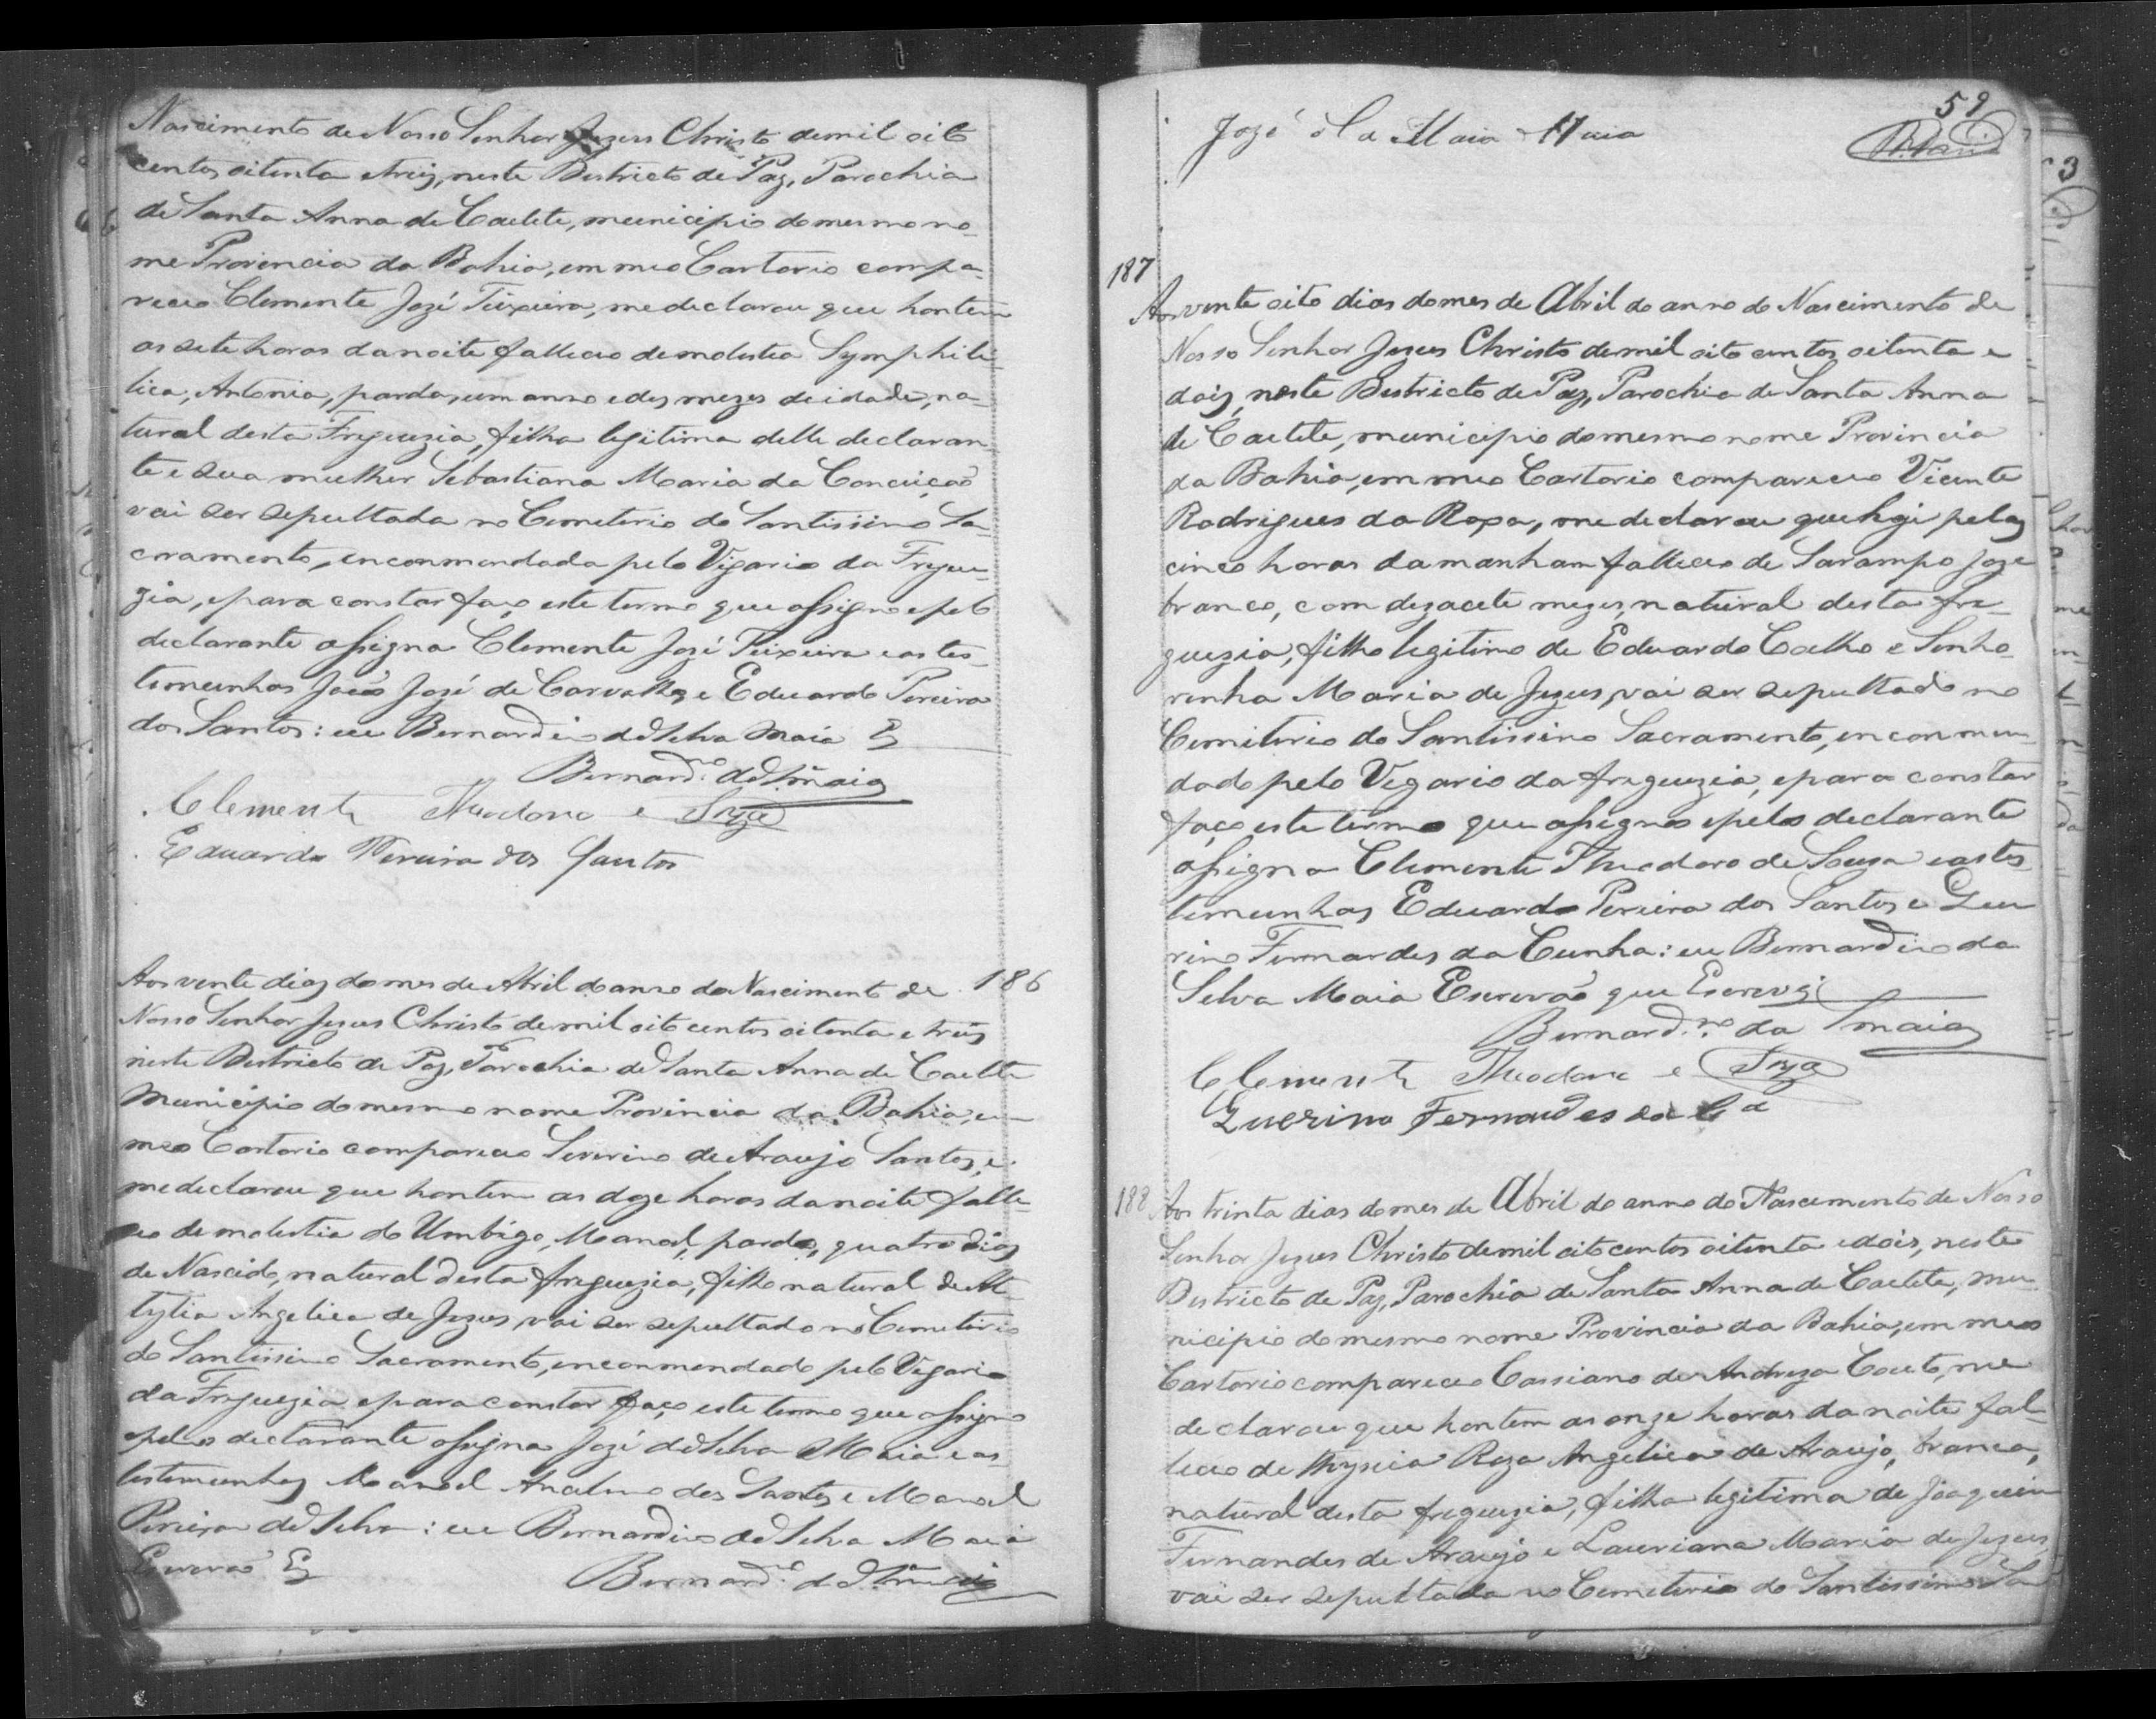 Nascimento de Nosso Senhor Jezus Christo de mil oito
centos oitenta e treis, neste Destricto de Paz, Parochia
de Santa Anna de Caeteté, municipio do mesmo no-
me Provencia da Bahia, em meo Cartorio compa-
receo Clemente José Teixeira, me declarou que hontem
as sete horas da noite falleceo de molestia Symphili-
tica, Antonia, parda, um anno e des mezes de idade, na-
tural desta Freguezia, filha legitima delle declaran-
te e sua mulher Sebastiana Maria da Conceição
vai ser sepultada no Cemeterio do Santissimo Sa-
cramento, enconmendada pelo Vigario da Fregue-
zia, e para constar faço este termo que assigno e pelo
declarante assigna Clemente José Teixeira e as tes-
temunhas João José de Carvalho e Eduardo Pereira
dos Santos: eu Bernardino da Selva Maia E
Bernardno da S. Maia
Clemente Theodoro e Sza
Eduardo Pereira dos Santos
186
Aos vente dias do mes de Abril do anno do Nascimento de
Nosso Senhor Jezus Christo de mil oito centos oitenta e treis
neste Destricto de Paz, Parochia de Santa Anna de Caeteté
Municipio do mesmo nome Provincia da Bahia, em
meo Cartorio compareceo Severino de Araujo Santos, e
me declarou que hontem as doze horas da noite falle-
ceo de molestia do Umbigo, Manoel, pardo, quatro dias
de Nascido, natural desta freguezia, filho natural de
Angelica de Jezus, vai ser sepultado no Cemeterio
do Santissimo Sacramento, enconmendado pelo Vegario
da Freguezia e para constar faço este termo que assigno
e pelo declarante assigna José da Selva Maia e as
testemunhas Manoel Anselmo dos Santos e Manoel
Pereira da Selva: eu Bernardino da Selva Maia
Escrevão E
Bernardno da S. Maia
59
José da Maia
187
Aos vente oito dias do mes de Abril do anno do Nascimento de
Nosso Senhor Jezus Christo de mil oito centos oitenta e
dois, neste Destricto de Paz, Parochia de Santa Anna
de Caeteté, municipio do mesmo nome Provincia
da Bahia, em meo Cartorio compareceo Vicente
Rodrigues da Roxa, me declarou que hoji pelas
cinco horas da manham falleceo de Sarampo José
branco, com dezacete mezes, natural desta fre-
guezia, filho legitimo de Eduardo Coelho e Senho-
renha Maria de Jezus, vai ser sepultado no
Cemiterio do Santissimo Sacramento, enconmen-
dado pelo Vegario da freguezia, e para constar
faço este termo que assigno e pelo declarante
assigna Clemente Theodoro de Souza e as tes-
temunhas Eduardo Pereira dos Santos e Que-
rino Fernandes da Cunha: eu Bernardino da
Selva Maia Escrevão que Escrevi
Bernardno da S Maia
Clemente Theodoro e Sza
Querino Fernandes da Ca
188
Aos trinta dias do mes de Abril do anno do Nascemento de Nosso
Senhor Jezus Christo de mil oito centos oitenta e dois, neste
Destricto de Paz, Parochia de Santa Anna de Caeteté, mu-
nicipio do mesmo nome Provincia da Bahia, em meo
Cartorio compareceo Cassiano de Andreza Couto, me
declarou que hontem as onze horas da noite fal-
leceo de thysica Roza Angelica de Araujo, branca,
natural desta freguezia, filha legitima de Joaquim
Fernandes de Araujo e Lauriana Maria de Jezus,
vai ser sepultada no Cemeterio do Santissimo Sa-